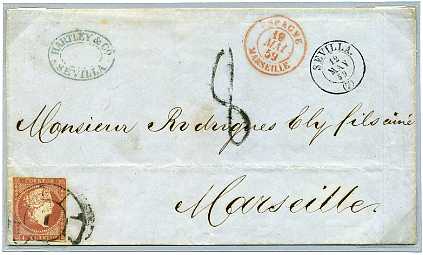 HARTLEY & Co
SEVILLA
ESPAGNE
19
MAI
59
MARSEILLE
SEVILLA
12
MAY
59
8
Monsieur Rodrigues Ely fils ainé
Marseille.